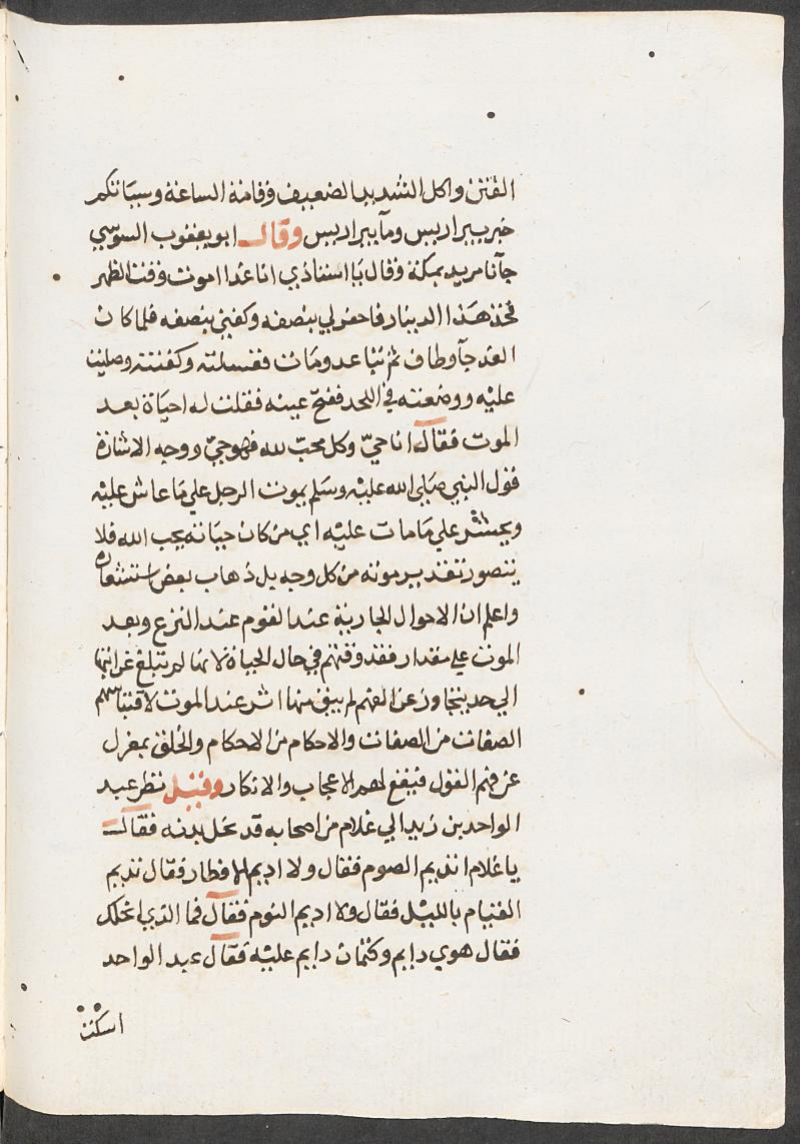 الفتن واكل الشديد الضعيف وقامة الساعة وسياتكم
خبر بير اريس وما بير اريس وقال ابو يعقوب السوسي
جآنا مريد بمكة وقال يا استاذي انا غدا اموت وقت الظهر
فخذ هذا الدينار فاحفر لي بنصفه وكفني بنصفه فلما كان
الغد جآ وطاف ثم تباعد ومات فغسلته وكفنته وصليت
عليه ووضعته في اللحد ففتح عينه فقلت له احياة بعد
الموت فقال انا حيّ وكل محبّ لله فهو حيّ ووجه الاشارة
قول النبي صلي الله عليه وسلم يموت الرجل علي ما عاش عليه
ويحشر علي ما مات عليه اي من كان حياته يحب الله فلا
يتصور تقدير موته من كل وجه بل ذهاب بعض استشعاره
واعلم ان الاحوال الجارية عند القوم عند النزع وبعد
الموت علي مقدار فقد وقتهم في حال الحياة لانها لم تبلغ غرائبها
الي حد يتجاوز عن الفهم لم يبق منها اثر عند الموت لاقتباسهم
الصفات من الصفات والاحكام من الاحكام والخلق بمعزل
عن فهم القول فيقع لهم الاعجاب والانكار وقيل نظر عبد
الواحد بن زيد الي غلام من اصحابه قد نحل بدنه فقال
يا غلام اتديم الصوم فقال ولا اديم الافطار فقال تديم
القيام بالليل فقال ولا اديم النوم فقال فما الذي انحلك
فقال هوي دايم وكتمان دايم عليه فقال عبد الواحد
اسكت